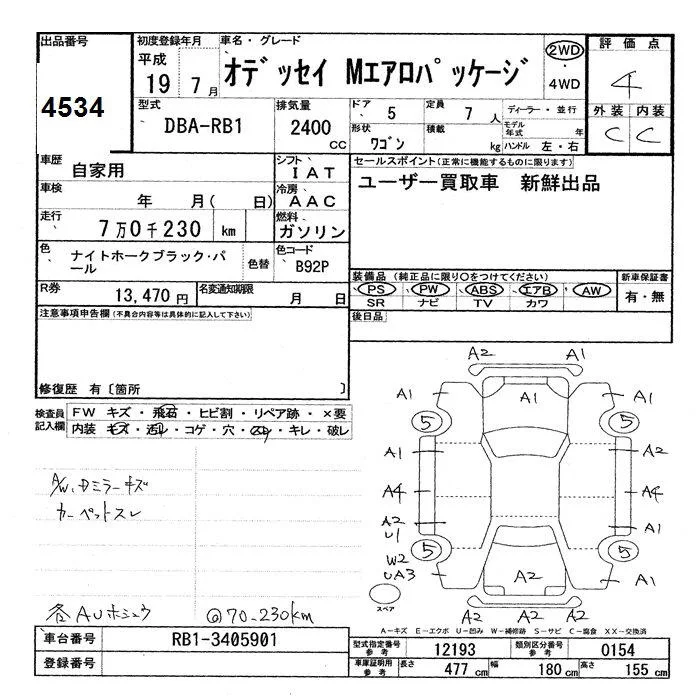 出品番号 初度登録年月 車名・グレード 評価点
4534 平成 19 7月 オデッセイ Mエアロパッケージ 2WD・4WD 4
型式 排気量 ドア 5 定員 7人 ディーラー・並行 外装 内装
DBA-RB1 2400cc 形状 ワゴン 積載 kg モデル年式 年 ハンドル 左・右 C C
車歴 自家用 シフト IAT セールスポイント(正常に機能するものに限ります)
車検 年 月( 日) 冷房 AAC ユーザー買取車 新鮮出品
走行 7万0千230km 燃料 ガソリン
色 ナイトホークブラック・パール 色替 色コード B92P
装備品(純正品に限り○をつけてください) 新車保証書
R券 13,470円 名変通知期限 月 日 PS・PW・ABS・エアB・AW 有・無
SR ナビ TV カワ
注意事項申告欄(不具合内容等は具体的に記入して下さい) 後日品
修復歴 有〔箇所 〕
検査員記入欄 FW キズ・飛石・ヒビ割・リペア跡・×要
内装 キズ・汚レ・コゲ・穴・スレ・キレ・破レ
A/W、Dミラーキズ
カーペットスレ
各AUホシュウ @70-230km
A2 A1
A1 A1 A1
5 5
A1 A2 A1
A4 A4
A2 U1 A1
5 5
W2 UA3 A2 A1
スペア
A2 A2 A2
A-キズ E-エクボ U-凹み W-補修跡 S-サビ C-腐食 XX-交換済
車台番号 RB1-3405901 型式指定番号 参考 12193 類別区分番号 参考 0154
登録番号 車庫証明用 参考 長さ 477cm 幅 180cm 高さ 155cm